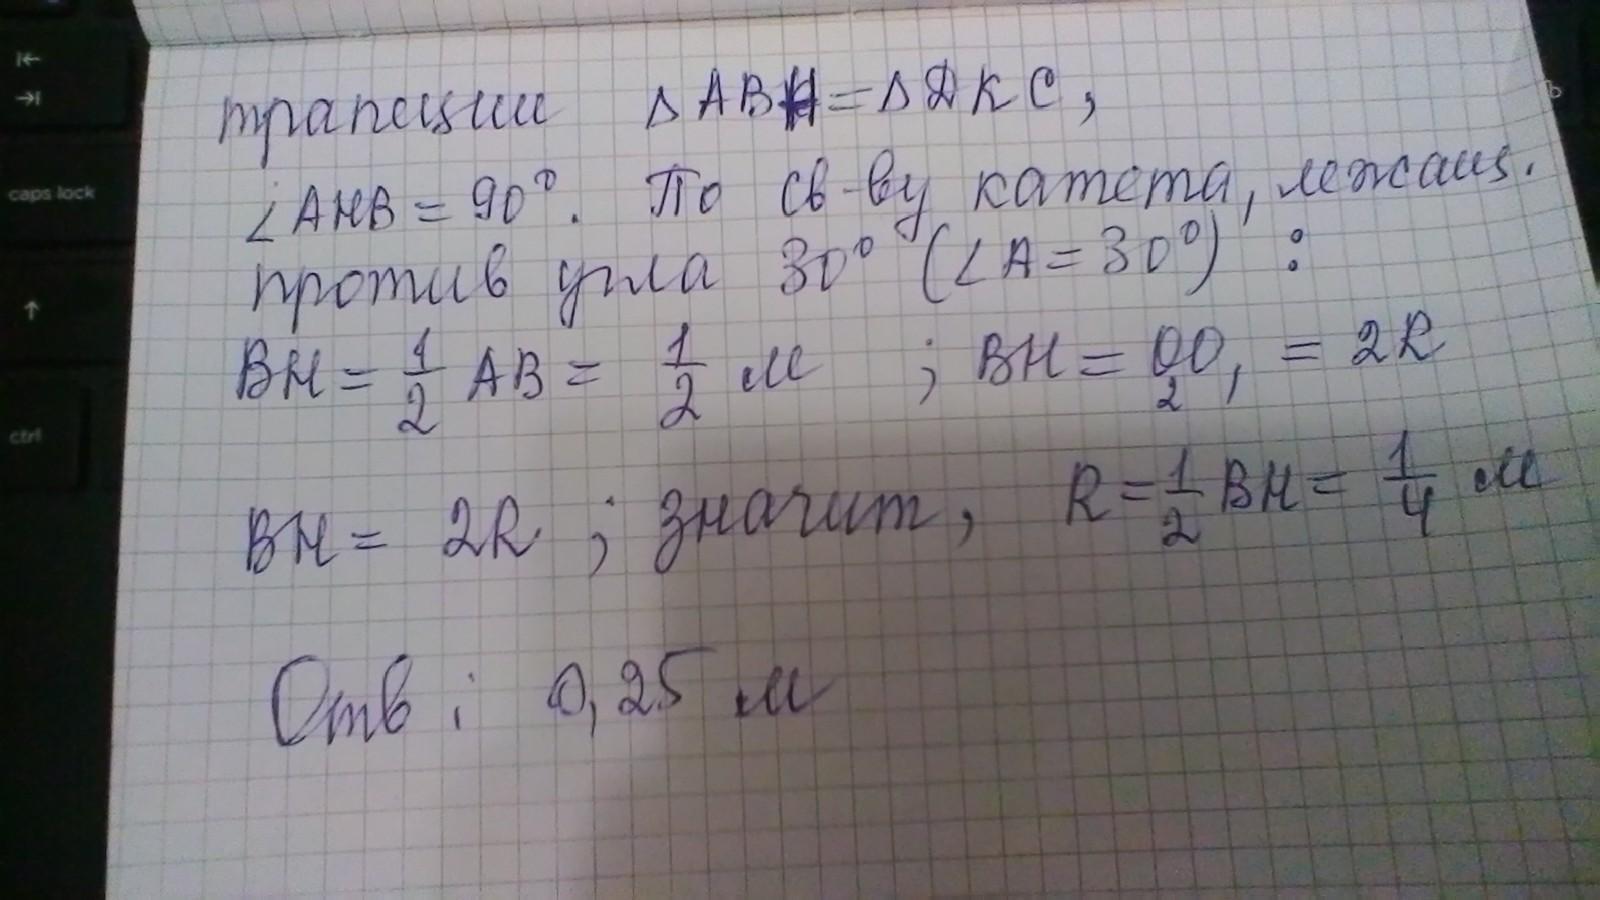 трапеции △ ABH = △ ДKC,
∠AHB = 90°. По св-ву катета, лежащ.
против угла 30° (∠A = 30°) :
BH = 1/2 AB = 1/2 м ; BH = O₂O₁ = 2R
BH = 2R ; значит, R = 1/2 BH = 1/4 м
Отв : 0,25 м
caps lock
ctrl